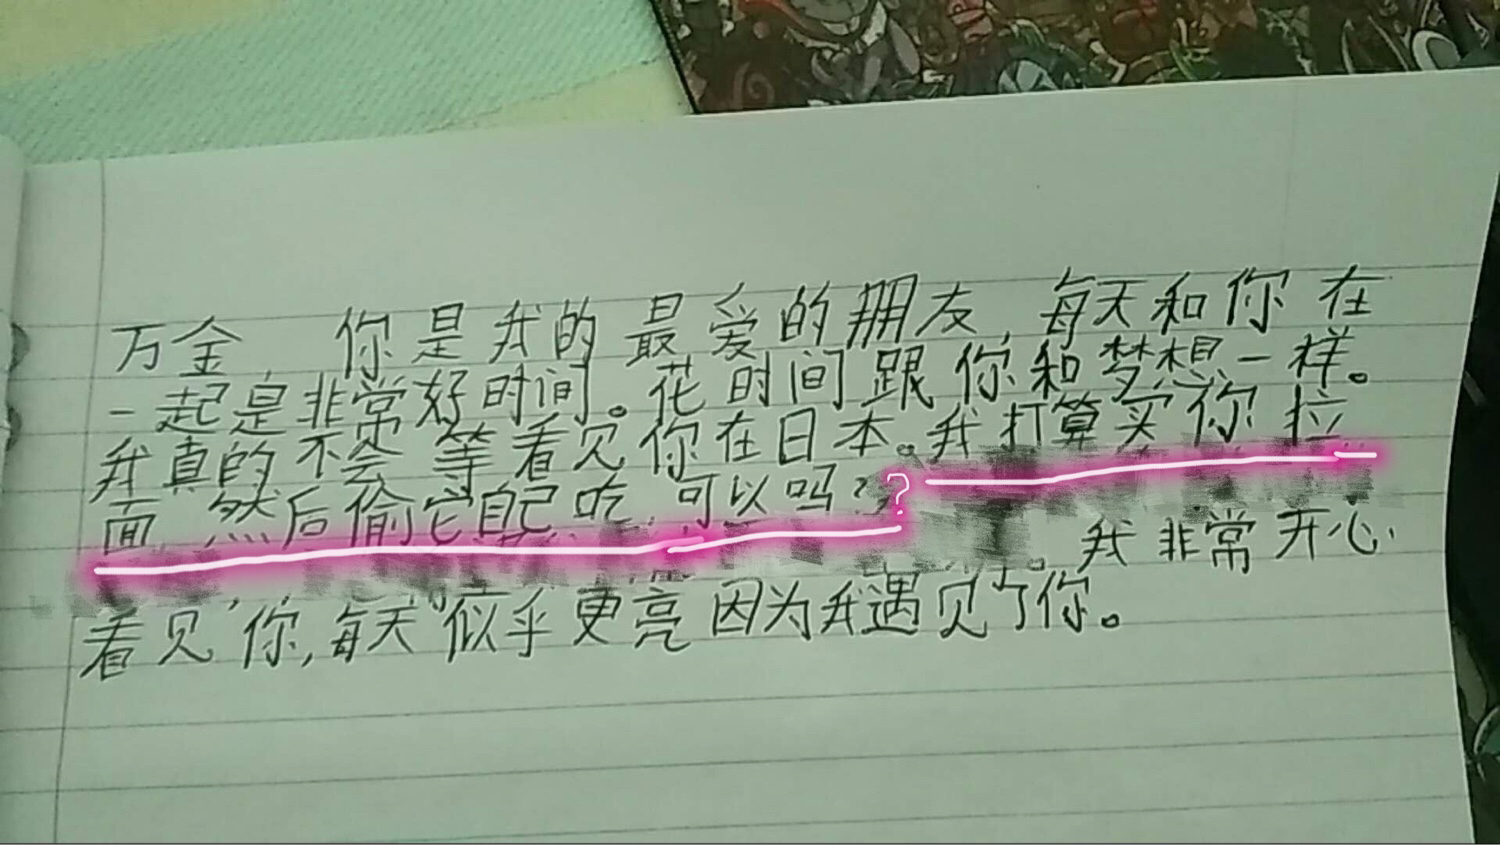 万金, 你是我的最爱的朋友, 每天和你在
一起是非常好时间。花时间跟你和梦想一样。
我真的不会等看见你在日本。我打算买你拉
面, 然后偷它自己吃, 可以吗? ?
我非常开心
看见你, 每天似乎更亮因为我遇见了你。